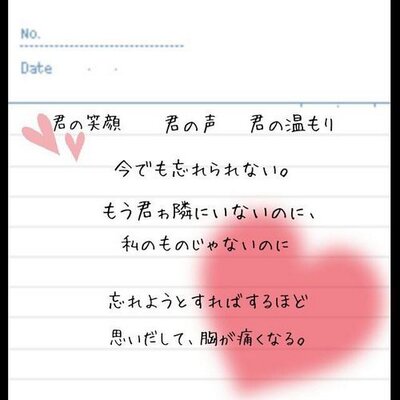 No.
Date
君の笑顔 君の声 君の温もり
今でも忘れられない。
もう君ゎ隣にいないのに、
私のものじゃないのに
忘れようとすればするほど
思いだして、胸が痛くなる。